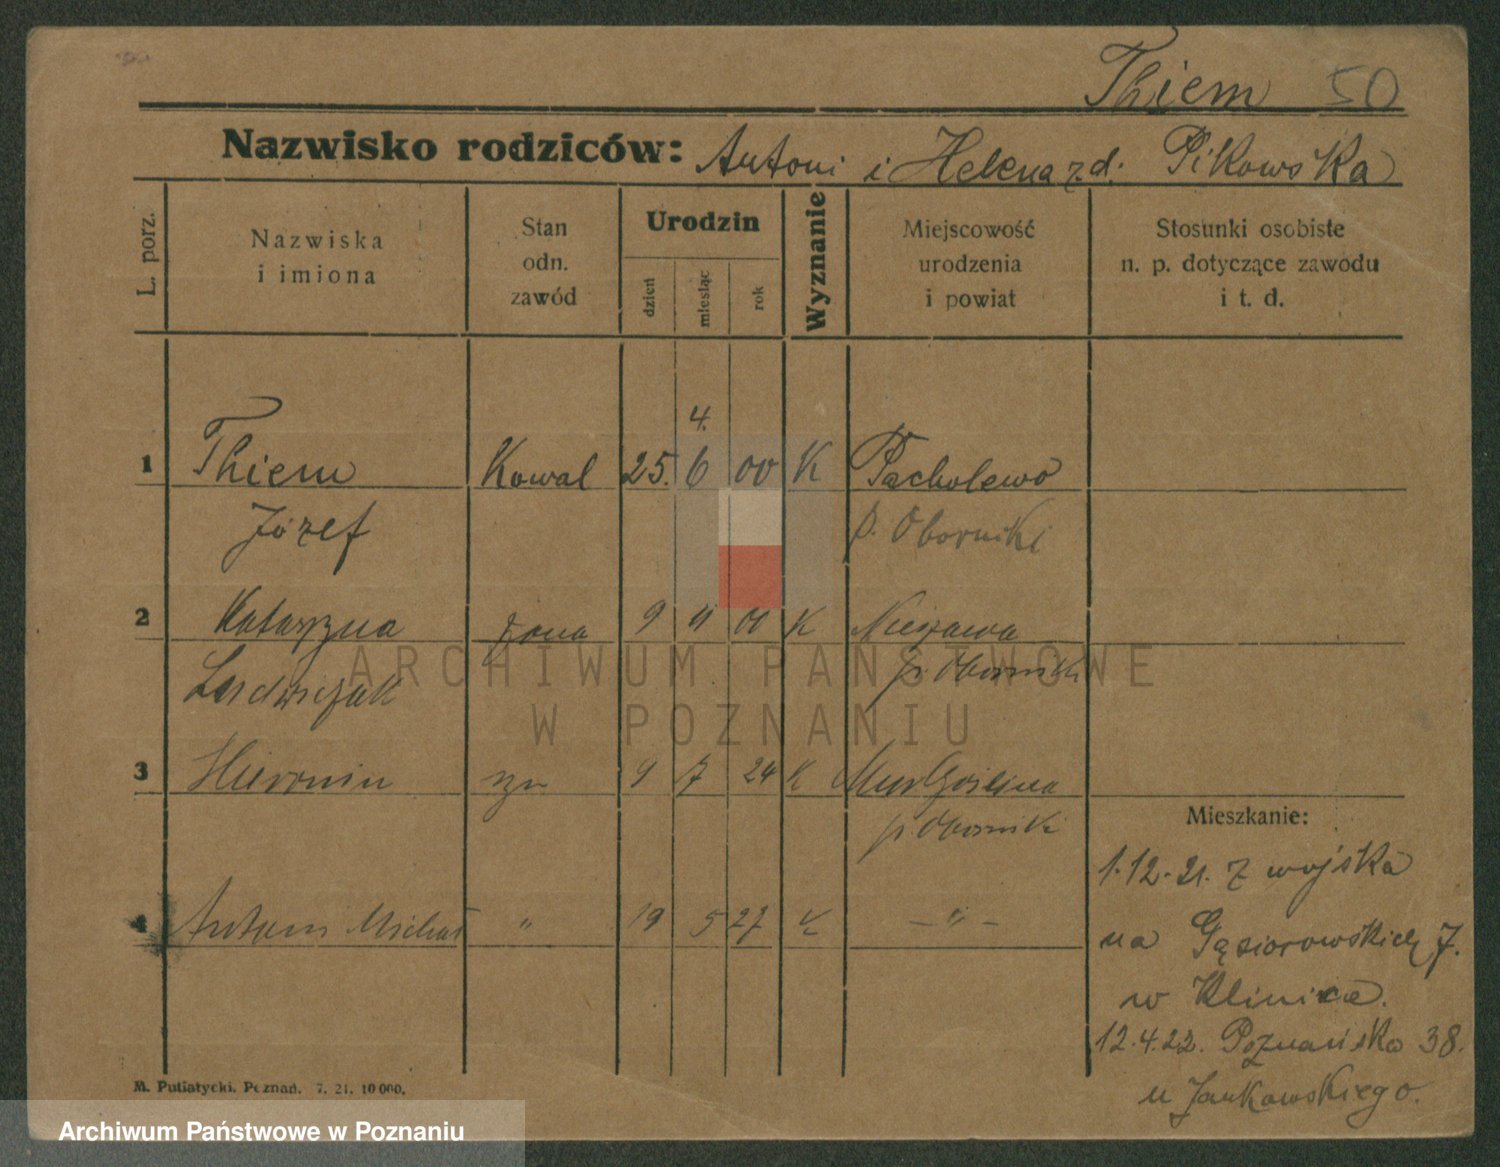 Thiem 50
Nazwisko rodziców: Antoni i Helena z d. Pikowska
L. porz.
Nazwiska i imiona
Stan odn. zawód
Urodzin
dzień
miesiąc
rok
Wyznanie
Miejscowość urodzenia i powiat
Stosunki osobiste n. p. dotyczące zawodu i t. d.
4.
1 Thiem Kowal 25. 6 00 K Pacholewo
Józef p. Oborniki
2 Katarzyna żona 9 11 00 K Nieszawa
p. Oborniki
3 Hieronim syn 9 7 24 K Mur Goślina
p Oborniki
4 Antoni Michał " 19 5 27 K — " —
Mieszkanie:
1.12.21. z wojska
na Gąsiorowskich 7.
w Klinice.
12.4.22. Poznańska 38.
u Jankowskiego.
M. Putiatycki. Poznań. 7. 21. 10 000.
ARCHIWUM PAŃSTWOWE
W POZNANIU
Archiwum Państwowe w Poznaniu